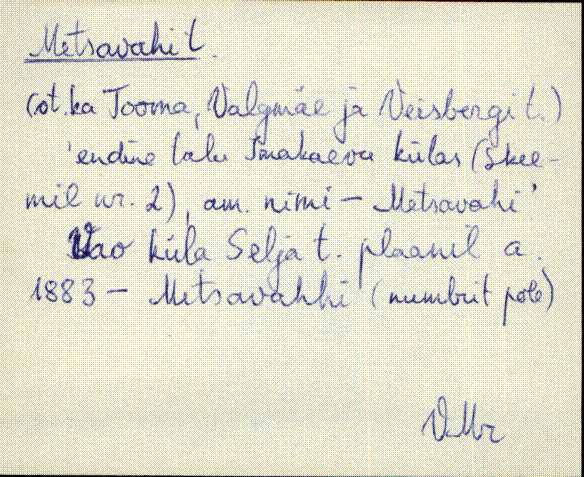 Metsavahi t.
(vt. ka Tooma, Valgmäe ja Veisbergi t.)
'endine talu Imakaevu külas (skee-
mil nr. 2), am. nimi - Metsavahi'
Vao küla Selja t. plaanil a.
1883 - Metsavahhi (numbrit pole)
VMr